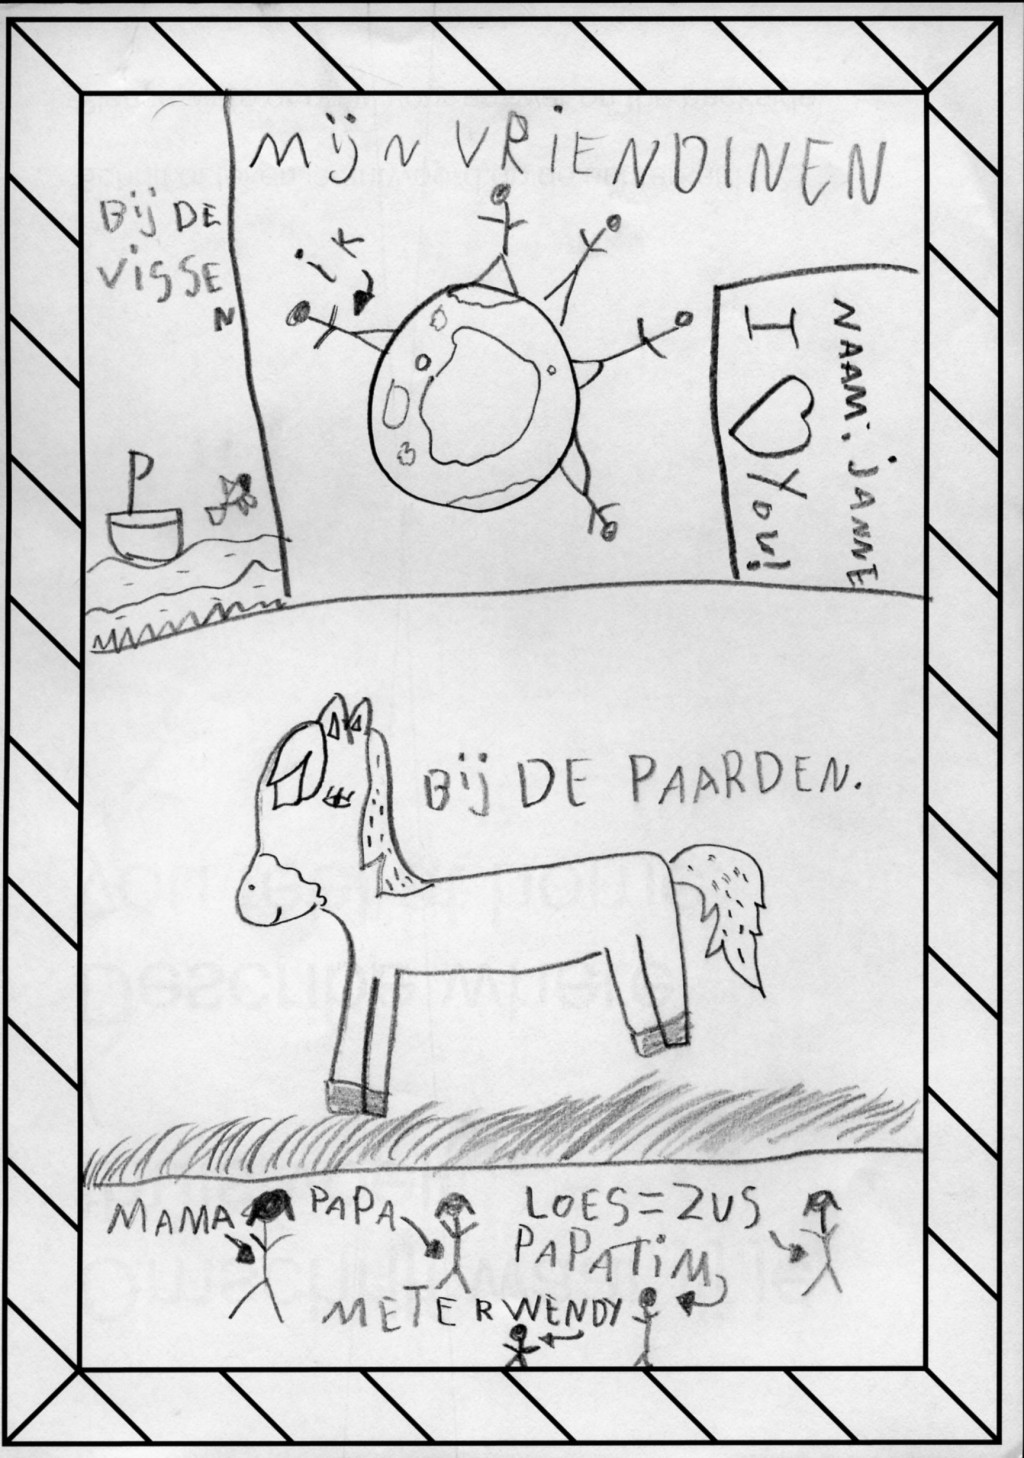 MIJN VRIENDINEN
BIJ DE
VISSE
N
IK
NAAM: JANNE
I ♡ YOU!
BIJ DE PAARDEN.
MAMA
PAPA
LOES=ZUS
PAPATIM
METERWENDY